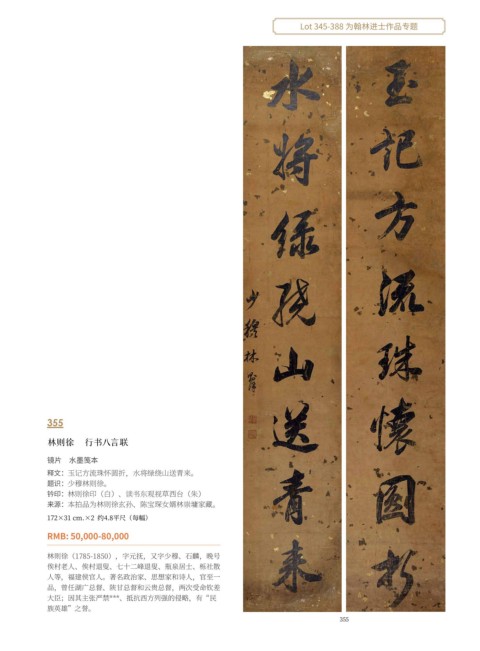 Lot 345-388 为翰林进士作品专题
玉记方流珠怀圆折
水将绿绕山送青来
少穆林则徐
355
林则徐 行书八言联
镜片 水墨笺本
释文：玉记方流珠怀圆折，水将绿绕山送青来。
题识：少穆林则徐。
钤印：林则徐印（白）、读书东观视草西台（朱）
来源：本拍品为林则徐玄孙、陈宝琛女婿林崇墉家藏。
172×31 cm.×2 约4.8平尺（每幅）
RMB: 50,000-80,000
林则徐（1785-1850），字元抚，又字少穆、石麟，晚号
俟村老人、俟村退叟、七十二峰退叟、瓶泉居士、栎社散
人等，福建侯官人。著名政治家、思想家和诗人，官至一
品，曾任湖广总督、陕甘总督和云贵总督，两次受命钦差
大臣；因其主张严禁***、抵抗西方列强的侵略，有“民
族英雄”之誉。
355